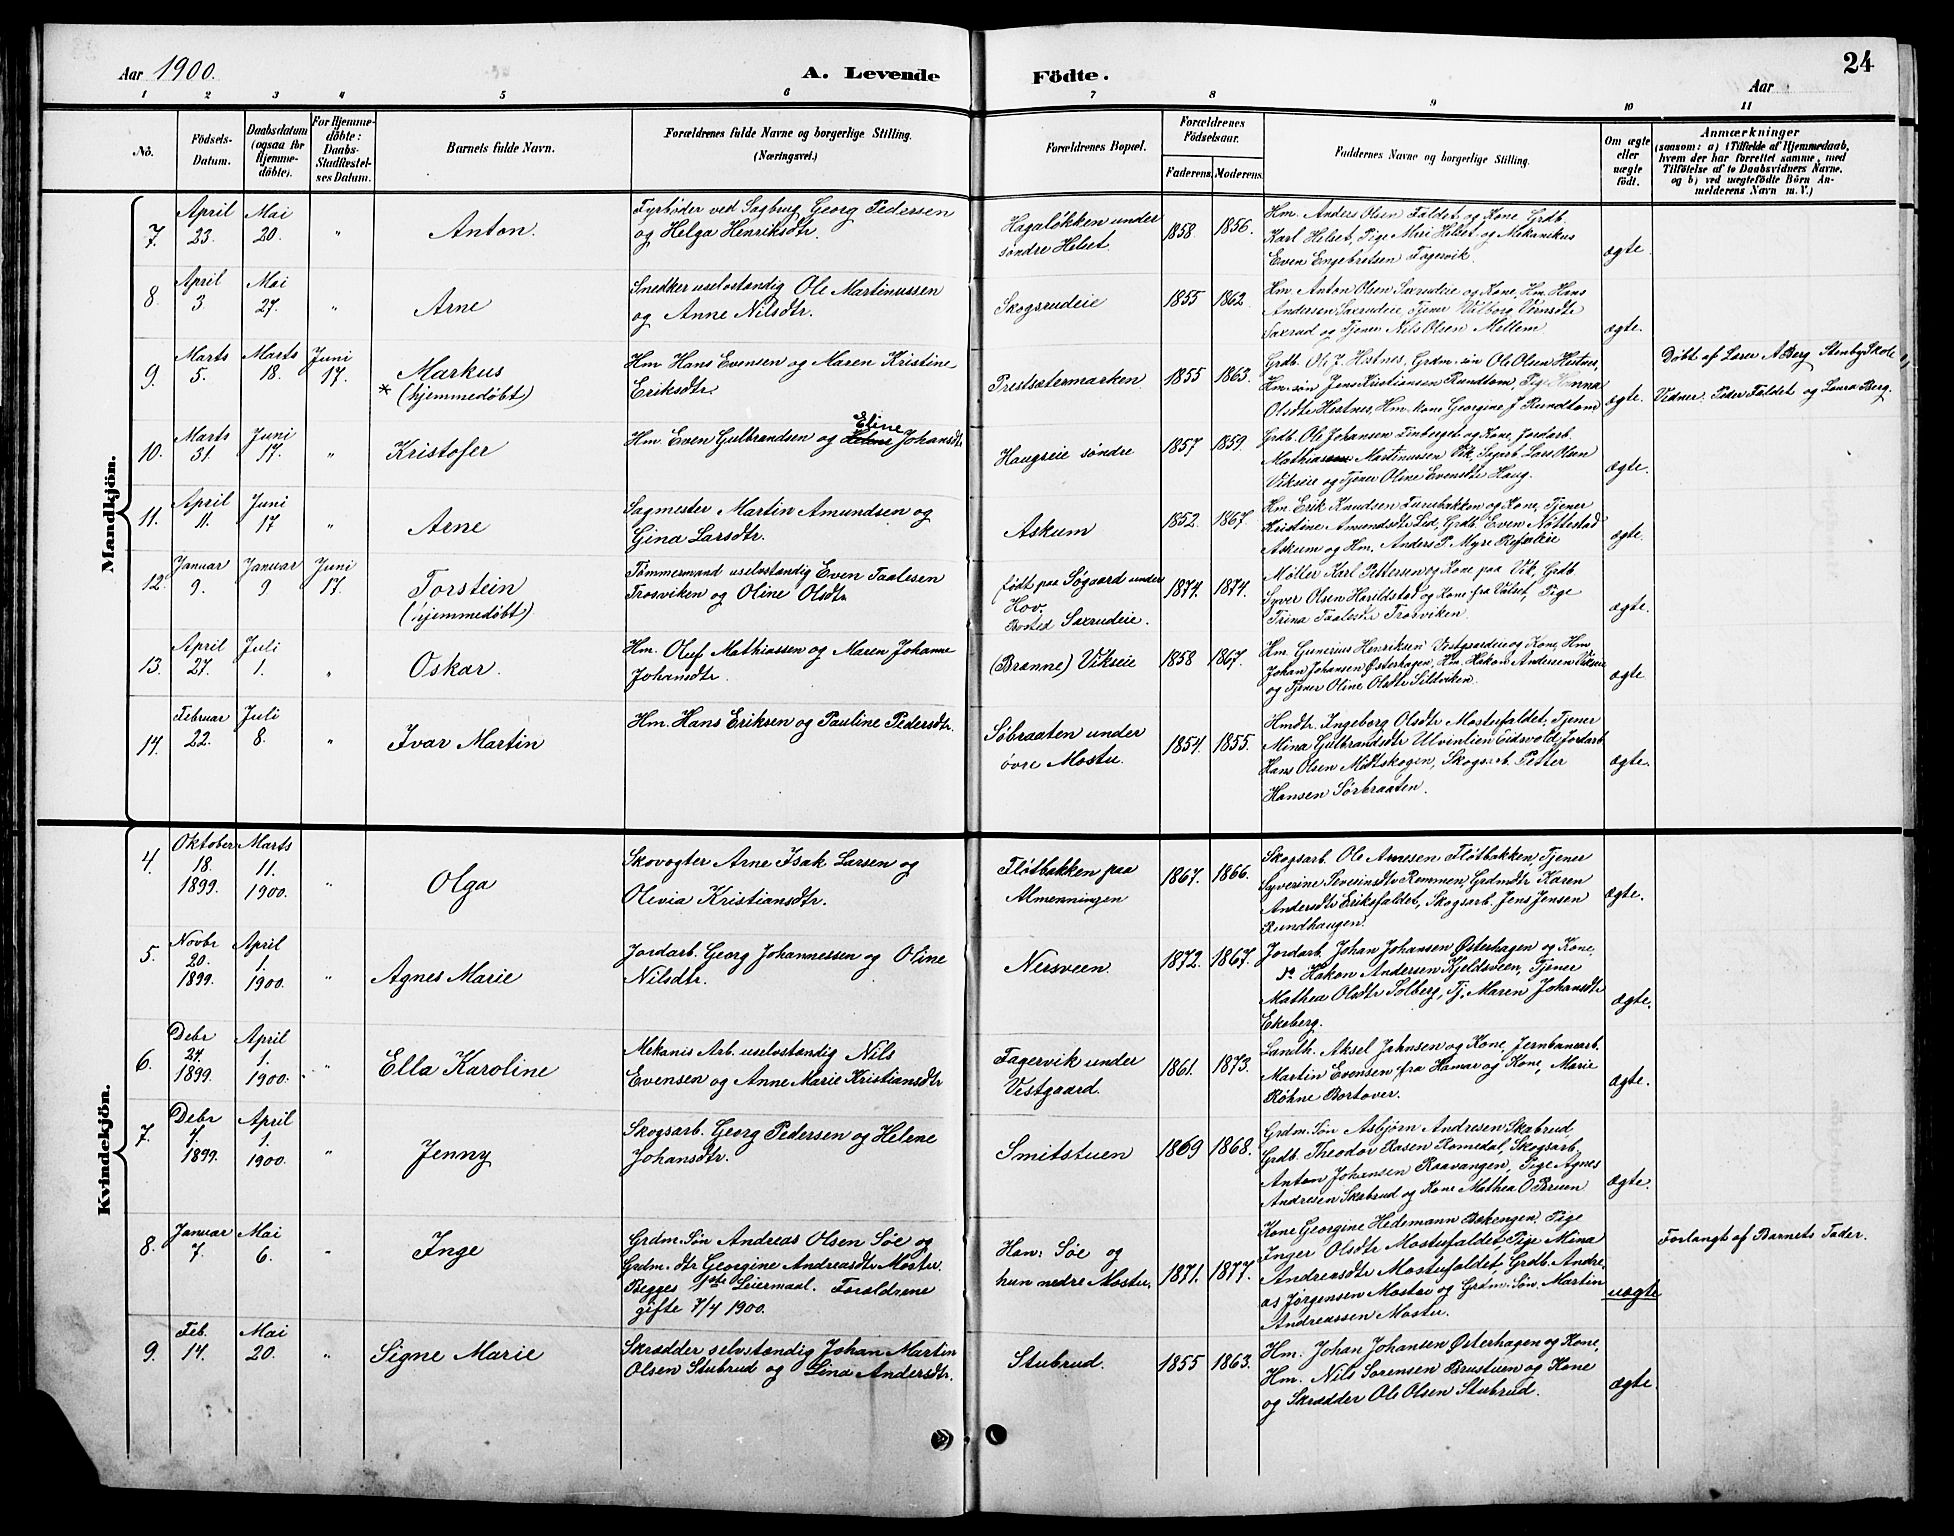 Aar 1900.
A. Levende Födte.
Aar
24
1 2 3 4 5 6 7 8 9 10 11
No.
Födsels-
Datum.
Daabsdatum
(ogsaa for
Hjemme-
döbte).
For Hjemme-
döbte:
Daabs-
Stadfæstel-
ses Datum.
Barnets fulde Navn.
Forældrenes fulde Navne og borgerlige Stilling.
(Næringsvei.)
Forældrenes Bopæl.
Forældrenes
Födselsaar.
Faderens. Moderens.
Faddernes Navne og borgerlige Stilling.
Om ægte
eller
uægte
födt.
Anmærkninger
(saasom: a) i Tilfælde af Hjemmedaab,
hvem der har forrettet samme, med
Tilföielse af to Daabsvidners Navne.
og b) ved uægtefödte Börn An-
melderens Navn m. V.)
Mandkjön.
7. April 23. Mai 20. " Anton.
Fyrbøder ved Sagbrug Georg Pedersen
og Helga Henriksdtr.
Hagaløkken under
søndre Helset
1858 1856.
Hm. Anders Olsen Faldet og Kone, Grdb.
Karl Helset, Pige Mari Helset og Mekanikus
Even Engebretsen Fagervik.
ægte.
8. April 3. Mai 27. " Arne
Snedker uselvstændig Ole Martinussen
og Anne Nilsdtr.
Skogsrudeie
1855 1862.
Hm. Anton Olsen Saxrudeie og Kone, Hm. Hans
Andersen Saxrudeie, Tjener Valborg
Saxrud og Tjener Nils Olsen Mellem
ægte.
9. Marts 5. Marts 18. Juni 17. Markus
* (hjemmedøbt)
Hm Hans Evensen og Maren Kristine
Eriksdtr.
Prestsætermarken
1855 1863.
Grdb. Ole J. Hestnes, Grdm. søn Ole Olsen Hestnes,
Hm. søn Jens Kristiansen Rundtom, Pige
Olsdtr Hestnes, Hm. kone Georgine J Rundtom
ægte.
Døbt af Lærer A Berg Stenby Skole
Vidner: Peder Faldet og Laura Berg.
10. Marts 31. Juni 17. " Kristofer
Eline
Hm. Even Gulbrandsen og Helene Johansdtr
Haugseie søndre
1857 1859.
Grdb. Ole Johansen Finberget og Kone, Jordarb.
Mathias Martinussen Vik, Lars Olsen
Vikseie og Tjener Oline Evensdtr Haug.
ægte.
11. April 11. Juni 17 " Arne
Sagmester Martin Amundsen og
Gina Larsdtr.
Askum
1852. 1867.
Hm. Erik Knudsen Furubakken og Kone, Tjener
Kristine Amundsdtr Lid, Grdb. Even Nøttestad
Askum og Hm. Anders P. Myre
ægte.
12. Januar 9. Januar 9. Juni 17. Torstein
(hjemmedøbt)
Tømmermand uselvstændig Even Taalesen
Trosviken og Oline Olsdtr
født paa Søgaard under
Hov.
Bosted Saxrudeie.
1874. 1874.
Møller Karl Pettersen og Kone paa Vik, Grdb.
Syver Olsen Harildstad og Kone fra Valset, Pige
Trina Taalesdtr Trosviken.
ægte.
13. April 27. Juli 1. " Oskar.
Hm. Oluf Mathiassen og Maren Johanne
Johansdtr.
(Brønne) Vikseie
1858 1867.
Hm. Gunerius Henriksen Vestgaardeie og Kone, Hm
Johan Johansen Østerhagen, Hm. Hakon Andersen Vikseie
og Tjener Oline Olsdtr Sildviken.
ægte
14. Februar 22. Juli 8. " Ivar Martin
Hm. Hans Eriksen og Pauline Pedersdtr.
Søbraaten under
øvre Mostu.
1854. 1855.
Hmdtr. Ingeborg Olsdtr Mostufaldet, Tjener
Mina Gulbrandsdtr Ulvinlien Eidsvold, Jordarb.
Hans Olsen Midtskogen, Skogsarb. Petter
Hansen Sørbraaten.
ægte.
Kvindekjön.
4. Oktober 18. 1899. Marts 11. 1900. " Olga
Skovogter Arne Isak Larsen og
Olivia Kristiansdtr.
Fløtbakken paa
Almenningen
1867. 1866.
Skogsarb. Ole Arnesen Fløtbakken, Tjener
Syverine Severinsdtr Rommen, Grdmdtr Karen
Andersdtr Eriksfaldet, Skogsarb. Jens Jensen
Rundhaugen.
ægte.
5. Novbr 20. 1899. April 1. 1900. " Agnes Marie
Jordarb. Georg Johannessen og Oline
Nilsdtr.
Nersveen.
1872. 1867.
Jordarb. Johan Johansen Østerhagen og Kone,
do Hakon Andersen Kjeldsveen, Tjener
Mathea Olsdtr Solberg, Tj. Maren Johansdtr
Ekeberg.
ægte.
6. Debr 24. 1899. April 1. 1900. " Ella Karoline
Mekanis Arb. uselvstændig Nils
Evensen og Anne Marie Kristiansdtr
Fagervik under
Vestgaard.
1861. 1873.
Landh. Aksel Jahnsen og Kone, Jernbanearb.
Martin Evensen fra Hamar og Kone, Marie
Røhne Bortover.
ægte.
7. Debr 4. 1899. April 1. 1900. " Jenny
Skogsarb. Georg Pedersen og Helene
Johansdtr.
Smitstuen
1869 1868.
Grdm. Søn Asbjørn Andresen Skabrud
Grdb. Theodor Rasen Romedal, Skogsarb.
Anton Johansen Raavangen, Pige Agnes
Andresen Skabrud og Kone Mathea O Bruen
ægte.
8. Januar 7. Mai 6. " Inge
Grdm. Søn Andreas Olsen Søe og
Grdm. dtr Georgine Andreasdtr Mostu.
Begges 1ste Leiermaal. Forældrene
gifte 7/4 1900.
Han: Søe og
hun nedre Mostu.
1871. 1877.
Kone Georgine Hedemann Bækengen, Pige
Inger Olsdtr Mostufaldet, Pige Mina
Andreasdtr Mostufaldet, Grdb. Andre-
as Jørgensen Mostu og Grdm. Søn. Martin
Andreassen Mostu.
uægte
Forlangt af Barnets Fader.
9. Feb. 14. Mai 20. " Signe Marie
Skrædder selvstændig Johan Martin
Olsen Stubrud og Lina Andersdtr.
Stubrud.
1855 1863.
Hm. Johan Johansen Østerhagen og Kone,
Hm. Nils Sørensen Brustuen og Kone
og Skrædder Ole Olsen Stubrud.
ægte.